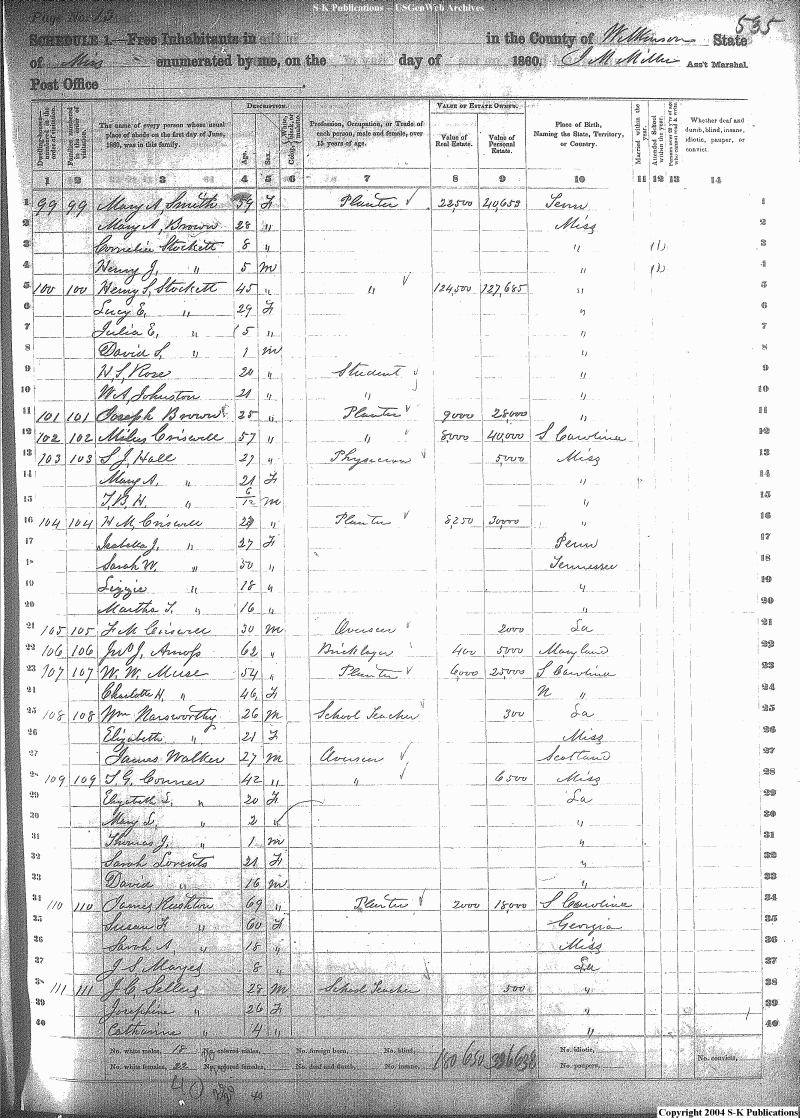 S-K Publications – USGenWeb Archives
Page No. 73
535
SCHEDULE 1.—Free Inhabitants in in the County of Wilkinson State
of Miss enumerated by me, on the day of 1860. J M Miller Ass't Marshal.
Post Office
Dwelling-houses—numbered in the order of visitation.
Families numbered in the order of visitation.
The name of every person whose usual place of abode on the first day of June, 1860, was in this family.
DESCRIPTION.
Age.
Sex.
Color, White, black, or mulatto.
Profession, Occupation, or Trade of each person, male and female, over 15 years of age.
VALUE OF ESTATE OWNED.
Value of Real Estate.
Value of Personal Estate.
Place of Birth, Naming the State, Territory, or Country.
Married within the year.
Attended School within the year.
Persons over 20 y'rs of age who cannot read & write.
Whether deaf and dumb, blind, insane, idiotic, pauper, or convict.
1 2 3 4 5 6 7 8 9 10 11 12 13 14
1 99 99 Mary A, Smith 59 F Planter 22,500 40,653 Tenn 1
2 Mary A, Brown 28 " Miss 2
3 Cornelia Stockett 8 " " 3
4 Henry J, " 5 m " 4
5 100 100 Henry S, Stockett 45 " " 124,500 127,685 " 5
6 Lucy E, " 29 F " 6
7 Julia E, " 5 " " 7
8 David S, " 1 m " 8
9 H, S, Rose 20 " Student " 9
10 W A, Johnston 21 " " " 10
11 101 101 Joseph Brown 25 " Planter 9000 28,000 " 11
12 102 102 Miles Criswell 57 " " 8000 40,000 S Carolina 12
13 103 103 S J, Hall 27 " Physician 5,000 Miss 13
14 Mary A, " 21 F " 14
15 T, B, H " 6/12 m " 15
16 104 104 H M, Criswell 29 " Planter 8,250 30000 " 16
17 Isabella J, " 27 F Penn 17
18 Sarah W, " 30 " Tennessee 18
19 Lizzie " 18 " " 19
20 Martha T, " 16 " " 20
21 105 105 F M Criswell 30 m Overseer 2000 La 21
22 106 106 Jno J, Amoss 62 " Bricklayer 400 5000 Maryland 22
23 107 107 W. W. Muse 54 " Planter 6,000 25000 S Carolina 23
24 Charlotte H, " 46 F N " 24
25 108 108 Wm Narsworthy 26 M School Teacher 300 La 25
26 Elizabeth " 21 F Miss 26
27 James Walker 27 M Overseer Scotland 27
28 109 109 T. G. Conner 42 " " 6500 Miss 28
29 Elizabeth L, " 20 F La 29
30 Mary L, " 2 " " 30
31 Thomas J, " 1 m " 31
32 Sarah Lorents 21 F " 32
33 David " 16 m " 33
34 110 110 James Rushton 69 " Planter 2000 18,000 S Carolina 34
35 Susan F " 60 F Georgia 35
36 Sarah A, " 18 " Miss 36
37 J S Mayes 8 " La 37
38 111 111 J, C, Sellers 28 M School Teacher 500 " 38
39 Josephine " 26 F " 39
40 Catharine " 4 " " 40
No. white males, 18 No. colored males, No. foreign born, No. blind, 180 650 No. idiotic,
No. white females, 22 No. colored females, No. deaf and dumb, No. insane, No. paupers, No. convicts,
40 40
Copyright 2004 S-K Publications